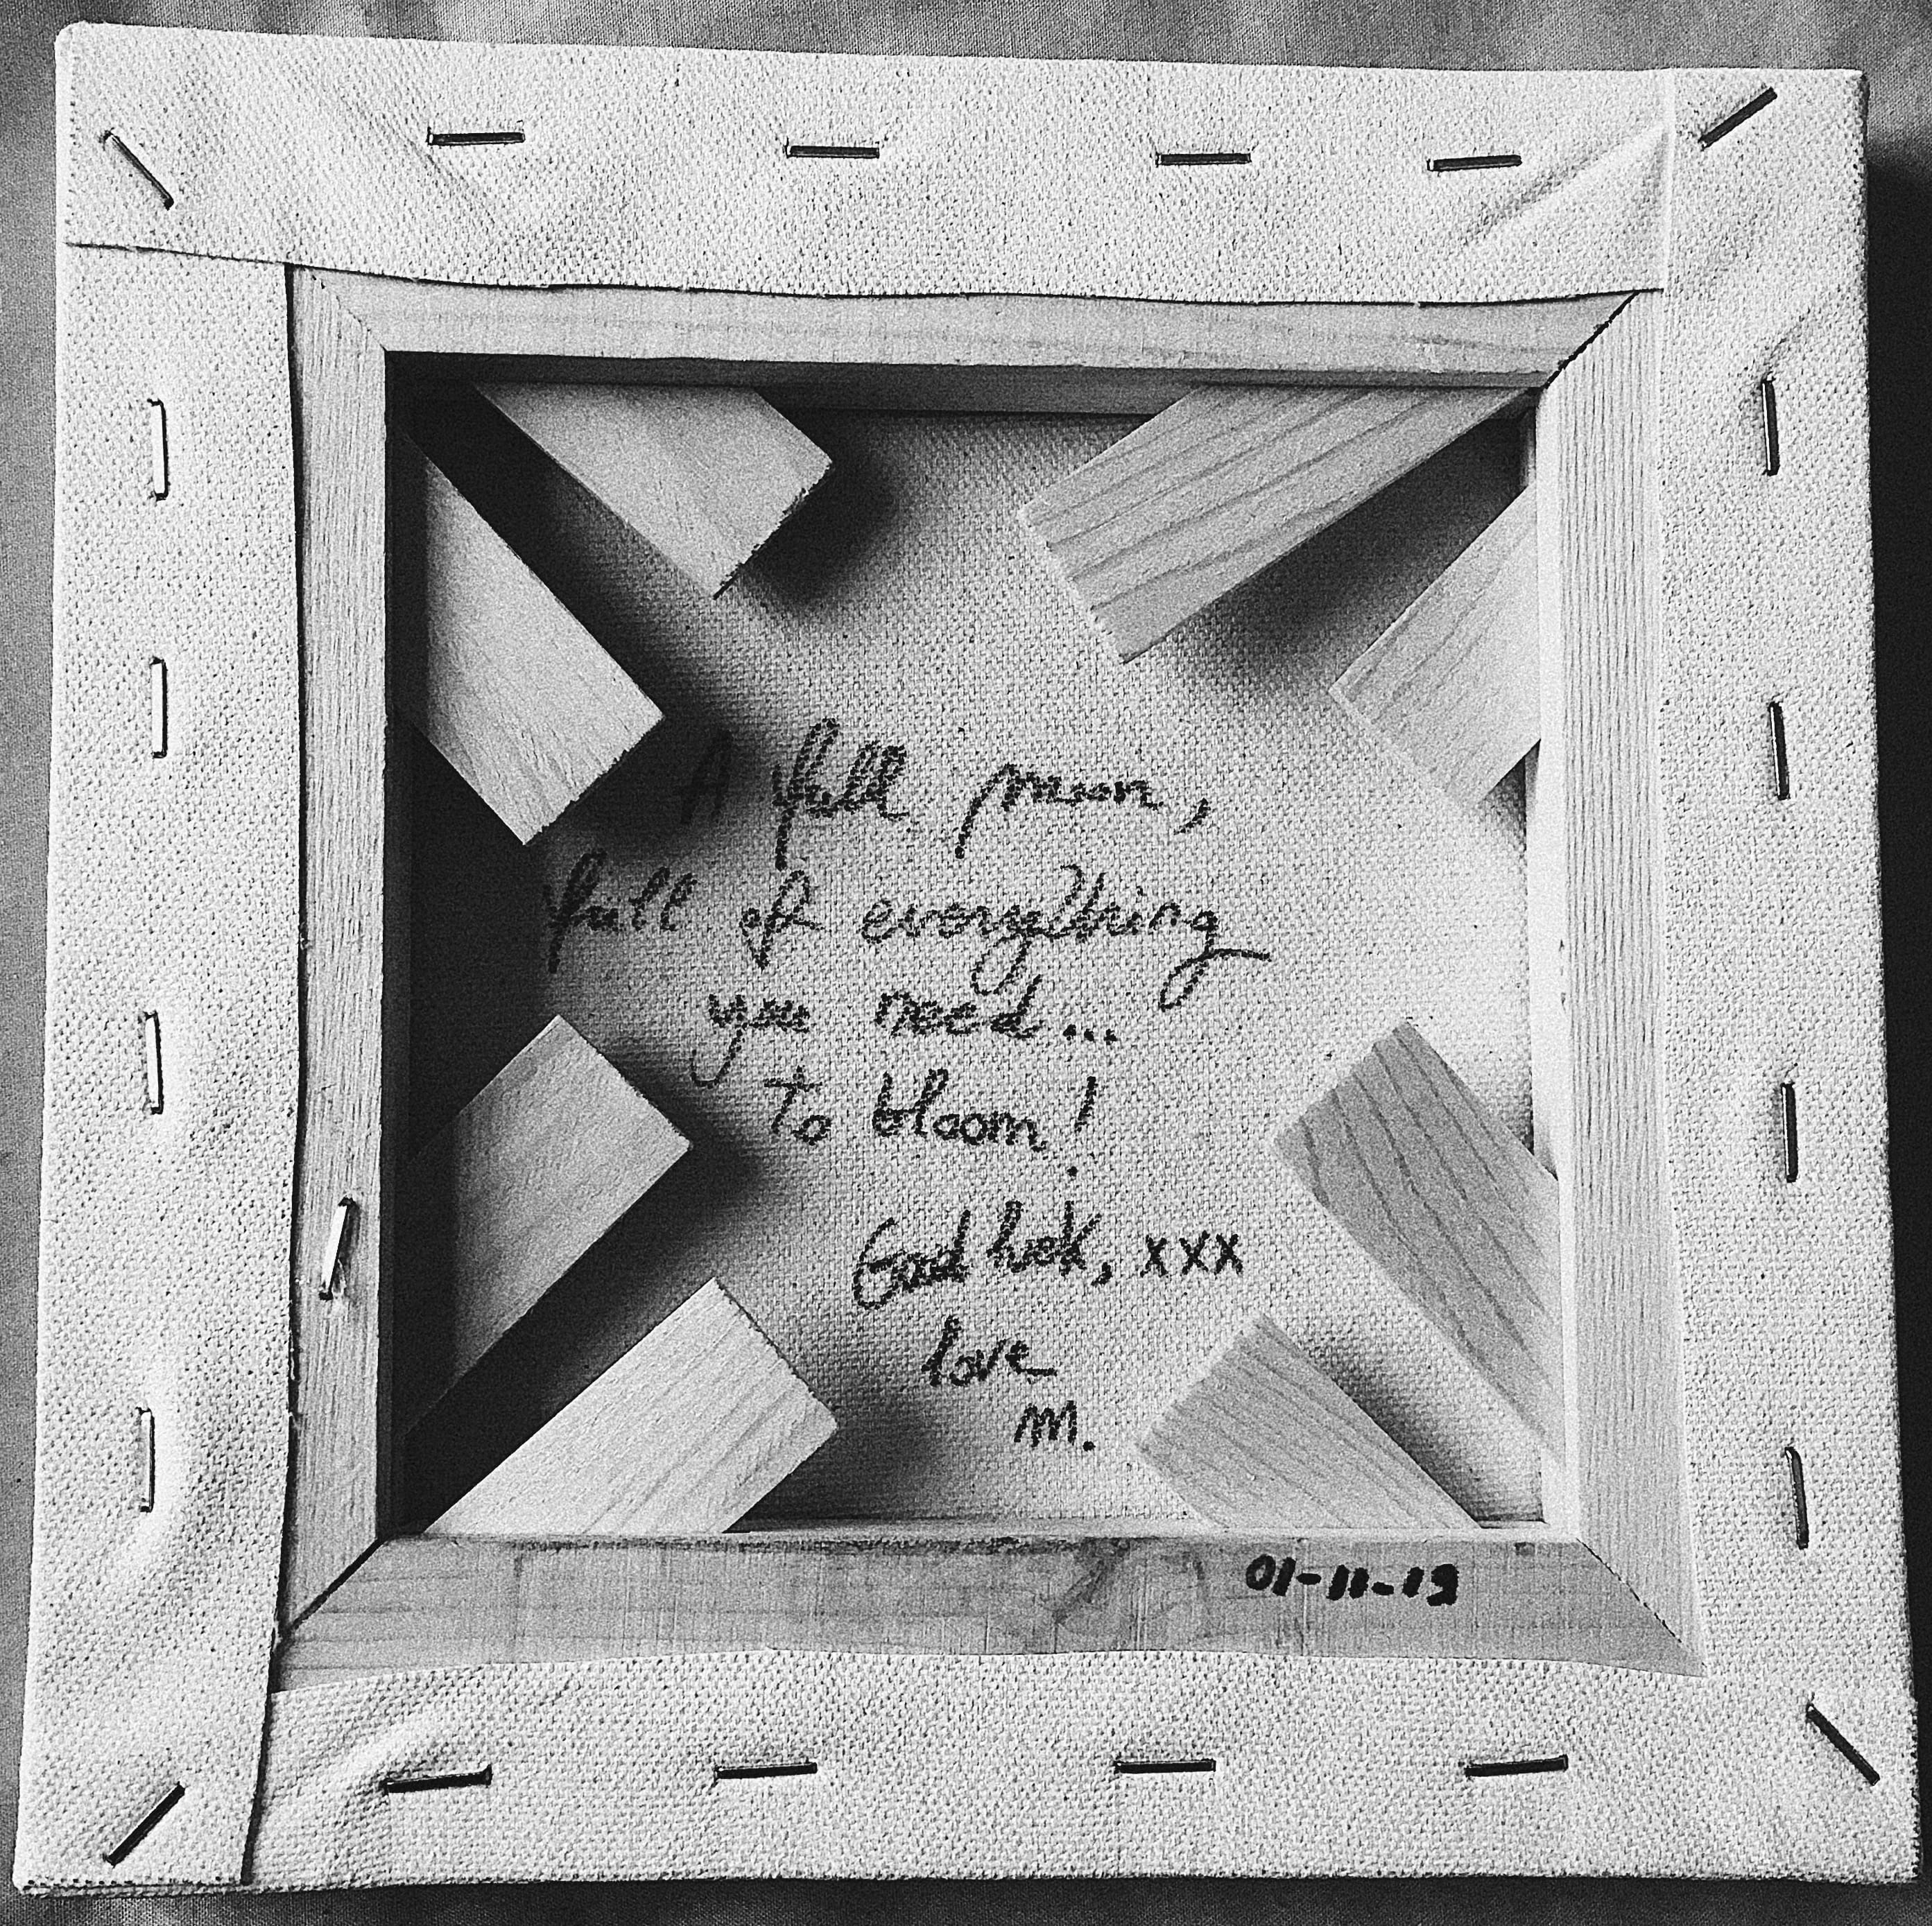 A full moon,
full of everything
you need...
to bloom!
Good luck, xxx
love
M.
01-11-19